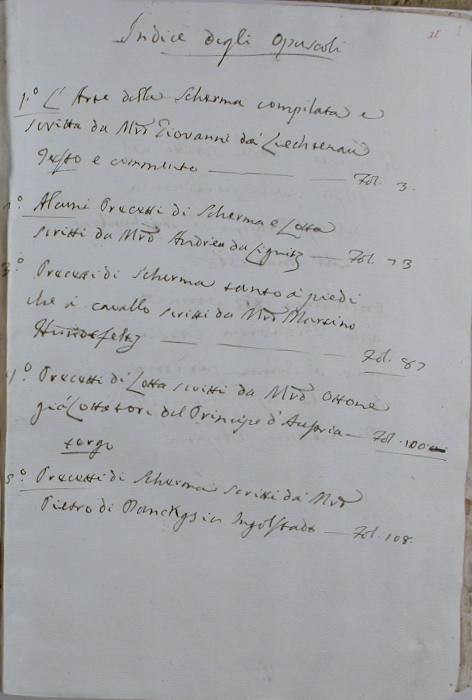 II
Indice degli Opuscoli
1.º L'Arte della Scherma compilata e
scritta da Mro Giovanni da Liechtenau
Testo e commento — — Fol. 3.
2º Alcuni Precetti di Scherma e Lotta
scritti da Mro Andrea da Lignitz — Fol. 73
3º Precetti di Scherma tanto a piedi
che à cavallo scritti da Mro Martino
Hundsfeltz — — — Fol. 87
4º Precetti di Lotta scritti da Mro Ottone
già Lottatore del Principe d'Austria — Fol. 100
tergo
5º Precetti di Scherma scritti da Mro
Pietro di Danckgs in Ingolstadt — Fol. 108.